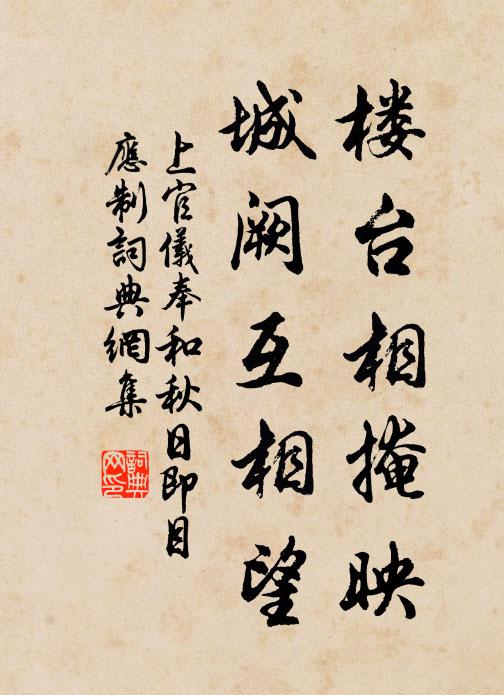 楼台相掩映
城阙互相望
上官儀奉和秋日即目
應制詞典網集
詞典網印